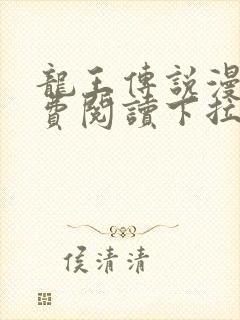 龍王傳說漫
費閱讀下拉
侯清清